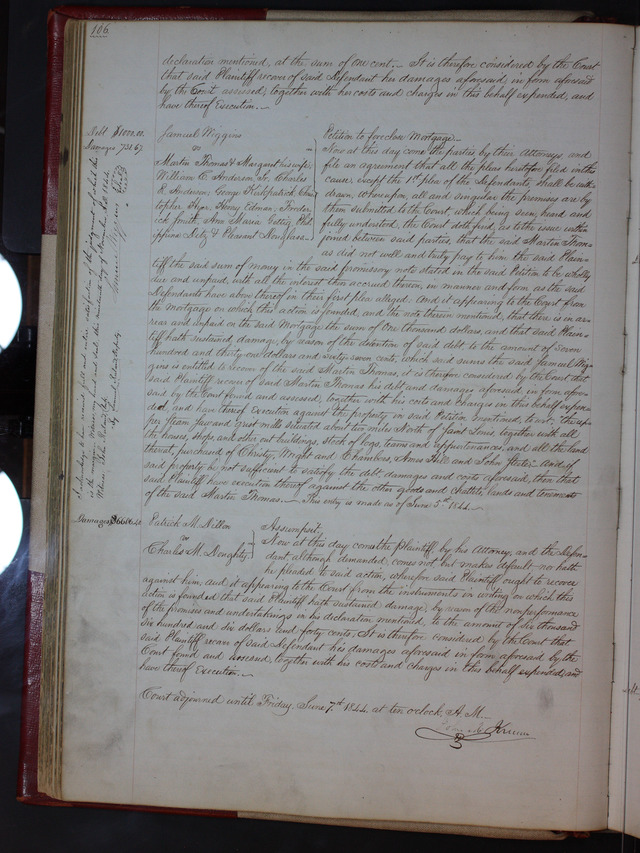 106
declaration mentioned, at the sum of one cent. It is therefore considered by the Court
that said Plaintiff recover of said Defendant her damages aforesaid in form aforesaid
by the Court assessed, together with her costs and charges in this behalf expended, and
have thereof Execution.
Debt $1000.00.
Damages 731.67
Samuel Wiggins
vs
Martin Thomas & Margaret his wife,
William C. Anderson, Charles
R. Anderson, George Kirkpatrick Chris-
topher Pope, Henry Edman, Freder-
ick Smith, Ann Maria Phil-
ippine & Pleasant Douglass
Petition to foreclose Mortgage
Now at this day come the parties by their Attorneys, and
file an agreement that all the pleas heretofore filed in this
cause, except the 1st plea of the Defendants, shall be with-
drawn, whereupon, all and singular the premises are by
them submitted to the Court, which being seen, heard and
fully understood, the Court doth find, as to the issue within
joined between said parties, that the said Martin Thom-
as did not well and truly pay to him the said Plain-
tiff the said sum of money in the said promissory note stated in the said Petition to be wholly
due and unpaid, with all the interest then accrued thereon, in manner and form as the said
Defendants have above thereof in their first plea alleged. And it appearing to the Court from
the Mortgage on which this action is founded, and the note therein mentioned, that there is in ar-
rear and unpaid on the said Mortgage the sum of One thousand dollars, and that said Plain-
tiff hath sustained damage, by reason of the detention of said debt to the amount of Seven
hundred and thirty one dollars and sixty seven cents, which said sums the said Samuel Wig-
gins is entitled to recover of the said Martin Thomas, it is therefore considered by the Court that
said Plaintiff recover of said Martin Thomas his debt and damages aforesaid, in form afore-
said by the Court found and assessed, together with his costs and charges in this behalf expen-
ded, and have thereof Execution against the property in said Petition mentioned, to wit, the up-
per steam, saw and grist mills situated about two miles North of Saint Louis, together with all
the houses, shops, and other out buildings, stock of logs, teams and appurtenances, and all the land
thereat, purchased of Christy, Wright and Chambers, Amos Hill and John . And if
said property be not sufficient to satisfy the debt, damages and costs aforesaid, then that
said Plaintiff have execution thereof against the other goods and chattels, lands and tenements
of the said Martin Thomas. This entry is made as of June 3rd 1844.
I acknowledge to have received full and entire satisfaction of the judgment of which this
is the margin. Witness my hand and seal this day of A.D. 1844.
Samuel Wiggins
Seal
Witness,
By Deputy
Damages $6606.40
Patrick M. Dillon
vs
Charles M. Doughty
Assumpsit.
Now at this day comes the Plaintiff, by his Attorney, and the Defen-
dant although demanded, comes not, but makes default, nor hath
he pleaded to said action, wherefore said Plaintiff ought to recover
against him, and it appearing to the Court from the instruments in writing on which this
action is founded that said Plaintiff hath sustained damage, by reason of the nonperformance
of the promises and undertakings in his declaration mentioned, to the amount of Six thousand
six hundred and six dollars and forty cents, It is therefore considered by the Court that
said Plaintiff recover of said Defendant his damages aforesaid in form aforesaid by the
Court found and assessed, together with his costs and charges in this behalf expended, and
have thereof Execution.
Court adjourned until Friday, June 7th 1844, at ten oclock, A.M.
Krum